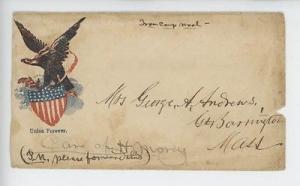 From Camp Wool –
Mrs George. A. Andrews,
Gt Barrington
Mass
Union Forever.
Care of H. Morey
(P.M. please forward this)